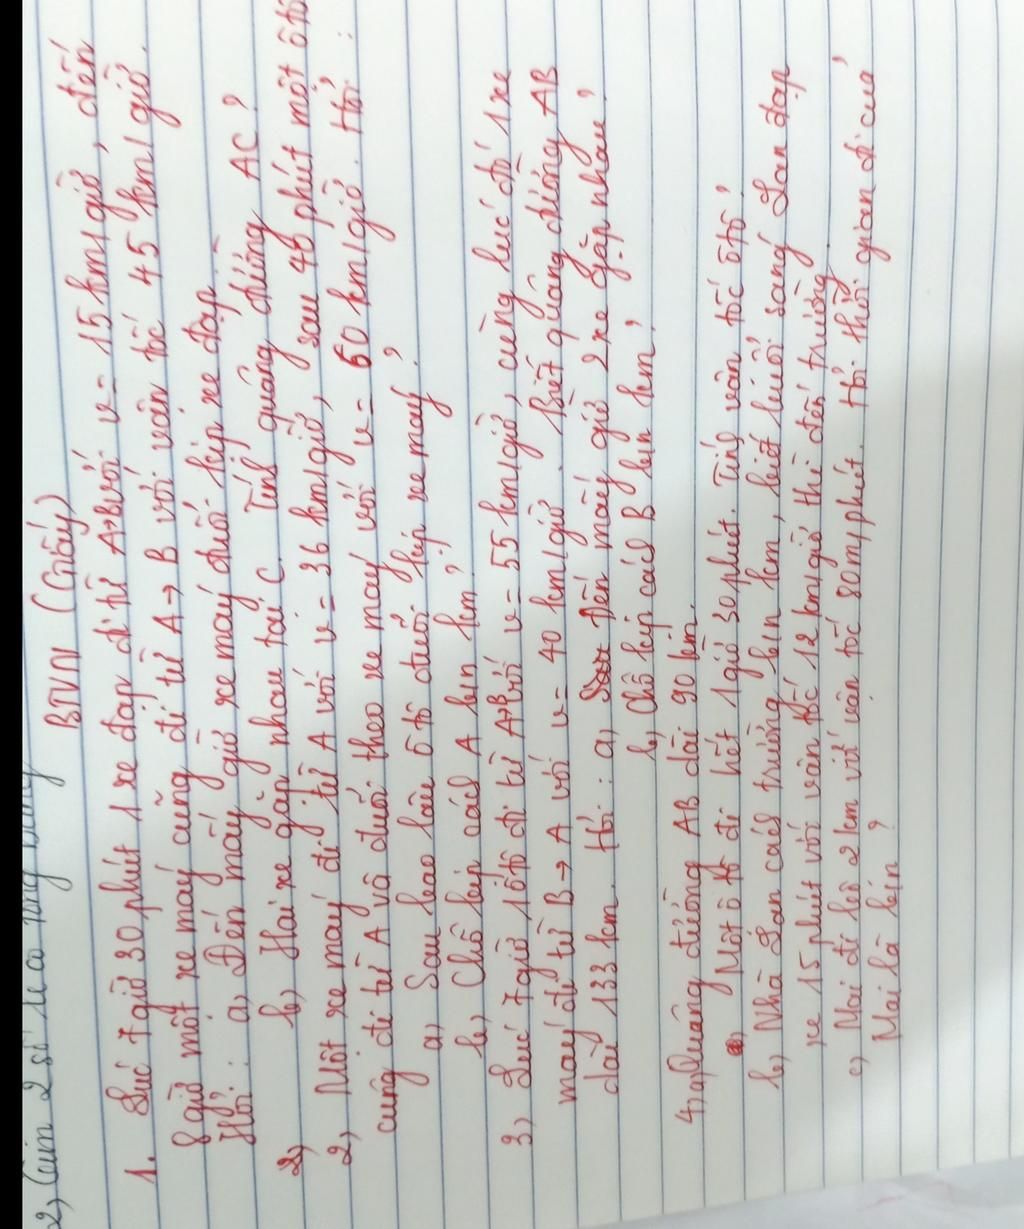 2, Tìm 2 số
BTVN (Giấy)
1. Lúc 7 giờ 30 phút 1 xe đạp đi từ A→B với v = 15 km/giờ, đến
8 giờ một xe máy cũng đi từ A → B với vận tốc 45 km/giờ.
Hỏi: a, Đến mấy giờ xe máy đuổi kịp xe đạp.
b, Hai xe gặp nhau tại C. Tính quãng đường AC?
2, Một xe máy đi từ A với v = 36 km/giờ, sau 40 phút một ôtô
cũng đi từ A và đuổi theo xe máy với v = 60 km/giờ. Hỏi:
a, Sau bao lâu ôtô đuổi kịp xe máy?
b, Chỗ kịp cách A bn km?
3, Lúc 7 giờ 1 ôtô đi từ A→B với v = 55 km/giờ, cùng lúc đó 1 xe
máy đi từ B → A với v = 40 km/giờ. biết quãng đường AB
dài 133 km. Hỏi: a, Đến mấy giờ 2 xe gặp nhau?
b, Chỗ kịp cách B bn km?
4, a, Quãng đường AB dài 90 km.
Một ô tô đi hết 1 giờ 30 phút. Tính vận tốc ôtô?
b, Nhà Lan cách trường bn km, biết buổi sáng Lan đạp
xe 15 phút với vận tốc 12 km/giờ thì đến trường
c, Mai đi bộ 2 km với vận tốc 80m/phút. Hỏi thời gian đi của
Mai là bn?